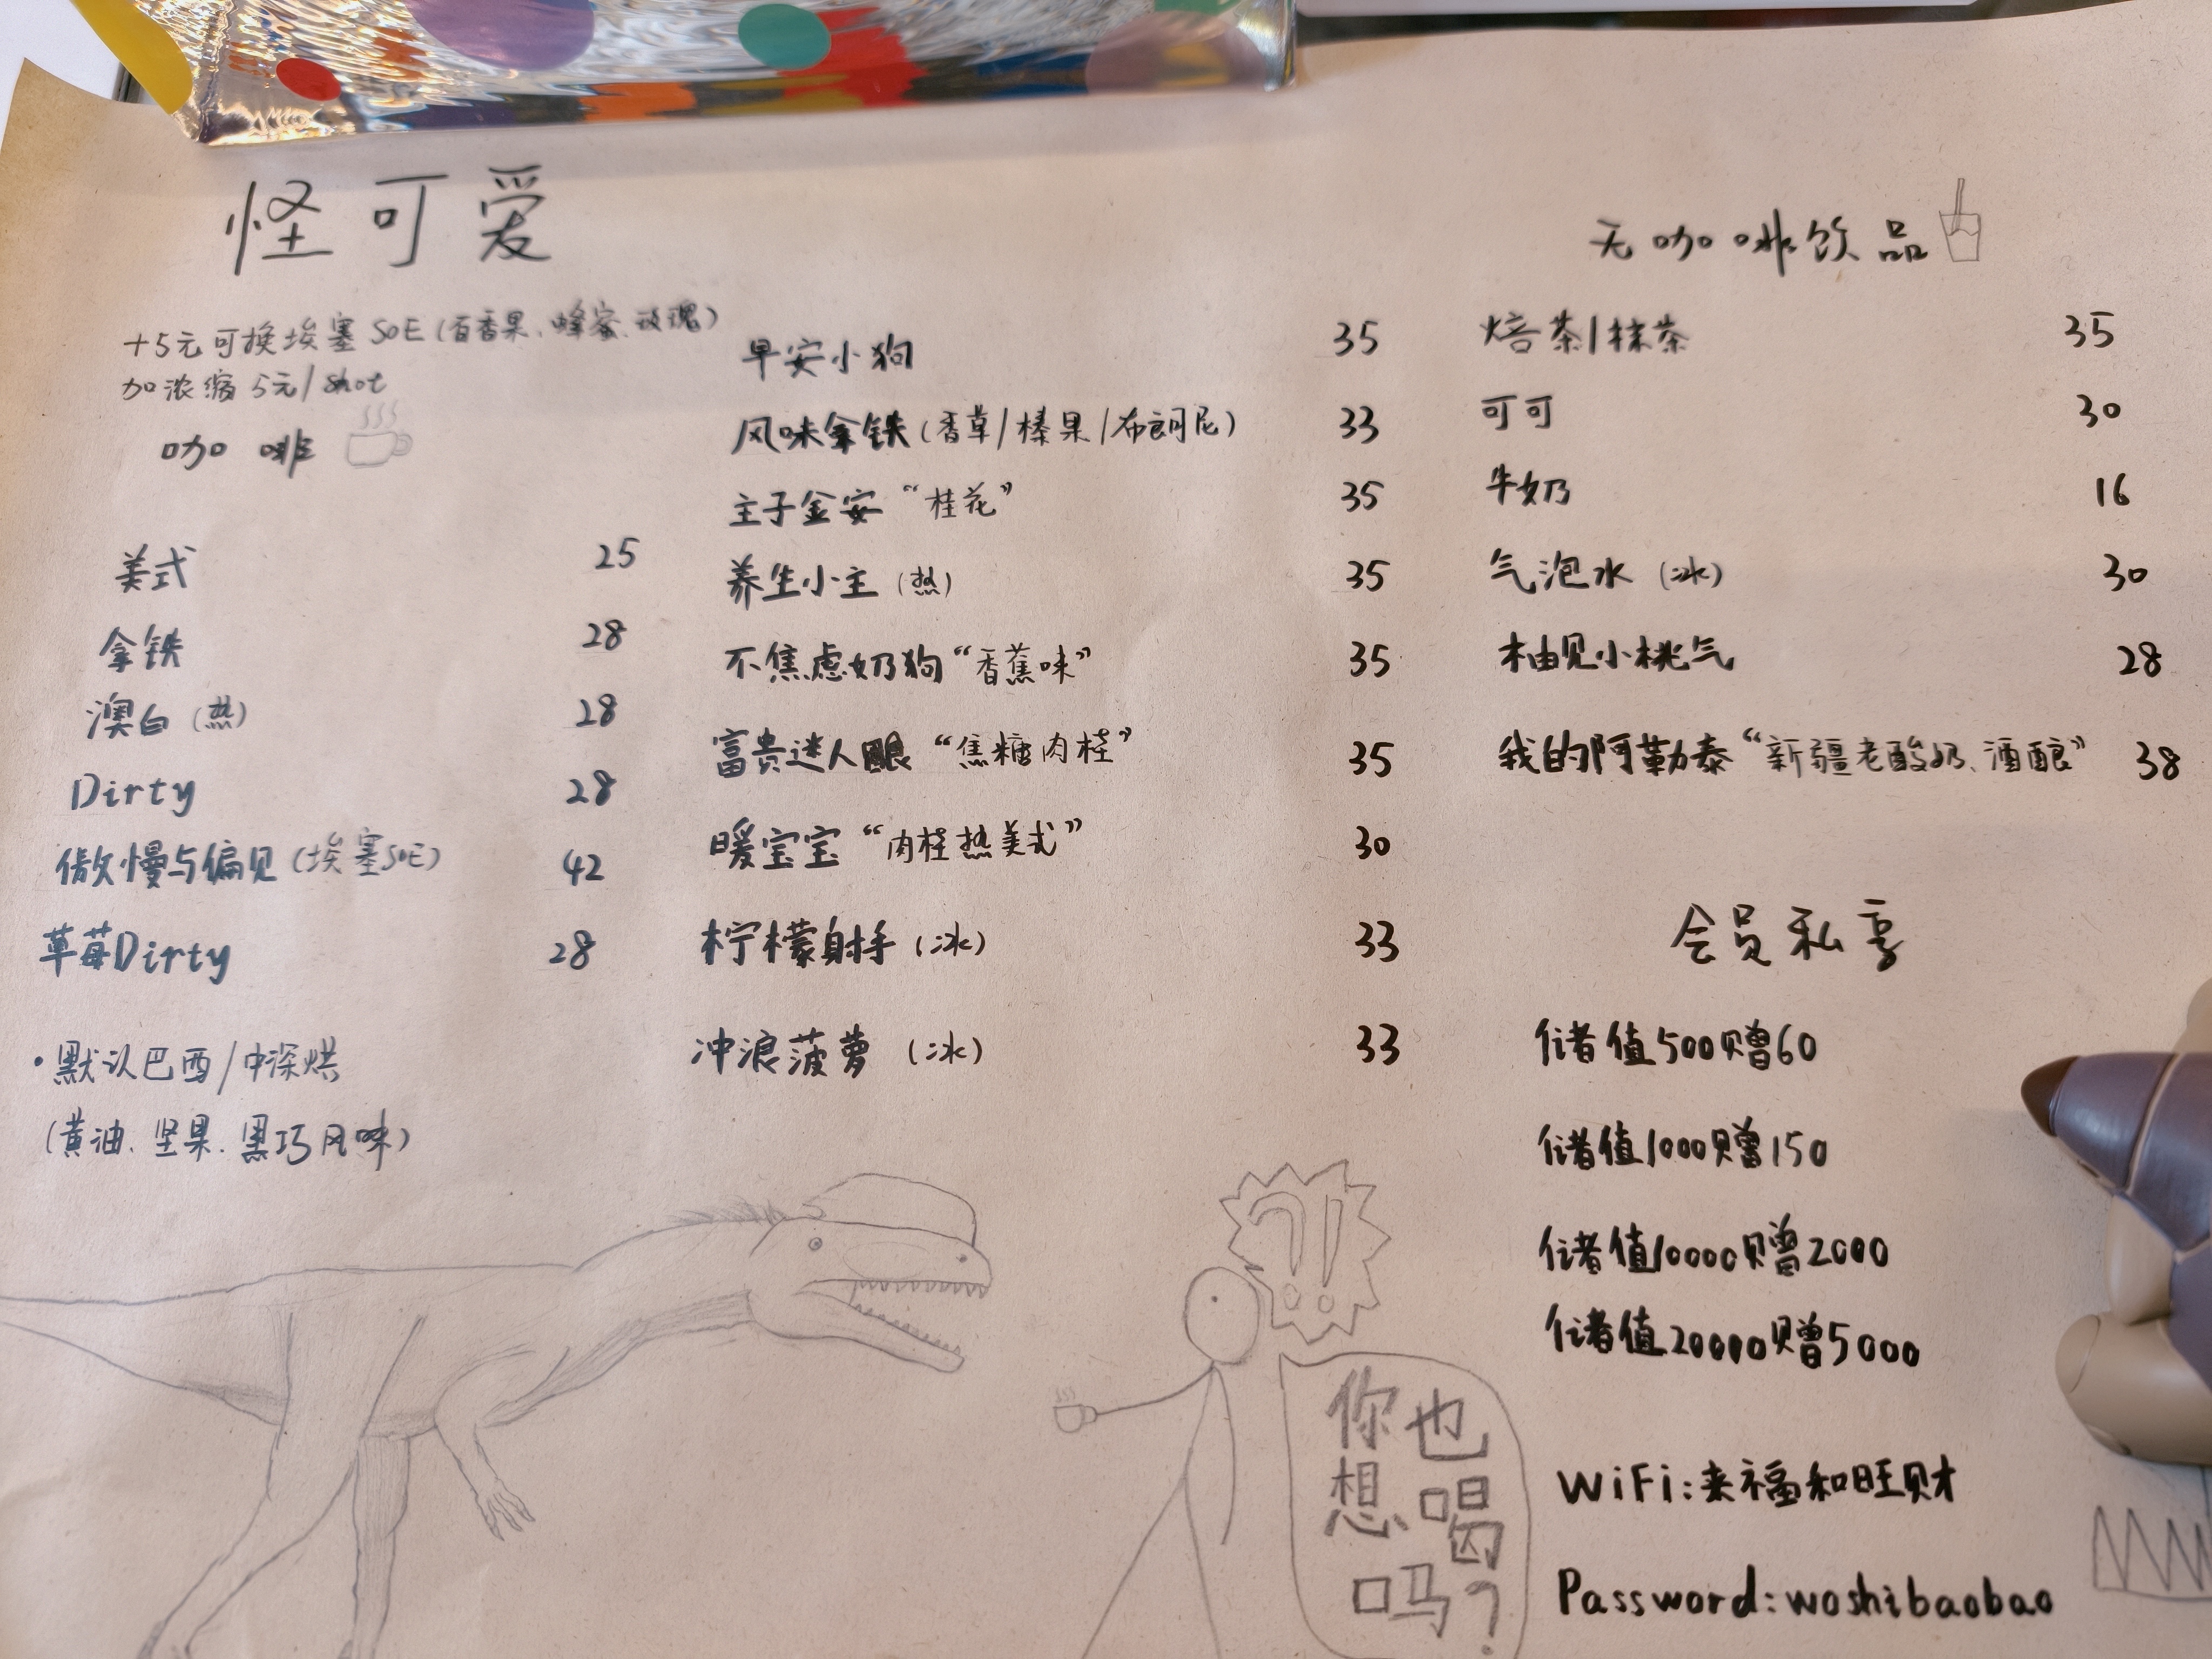 怪可爱
+5元可换埃塞SOE(百香果、蜂蜜、玫瑰)
加浓缩 5元/shot
咖啡
美式 25
拿铁 28
澳白(热) 28
Dirty 28
傲慢与偏见(埃塞SOE) 42
草莓Dirty 28
·默认巴西/中深烘
(黄油、坚果、黑巧风味)
早安小狗 35
风味拿铁(香草/榛果/布朗尼) 33
主子金安“桂花” 35
养生小主(热) 35
不焦虑奶狗“香蕉味” 35
富贵迷人眼“焦糖肉桂” 35
暖宝宝“肉桂热美式” 30
柠檬射手(冰) 33
冲浪菠萝(冰) 33
无咖啡饮品
焙茶/抹茶 35
可可 30
牛奶 16
气泡水(冰) 30
柚见小桃气 28
我的阿勒泰“新疆老酸奶、酒酿” 38
会员私享
储值500赠60
储值1000赠150
储值10000赠2000
储值20000赠5000
WiFi:来福和旺财
Password:woshibaobao
?!
你也
想喝
吗?